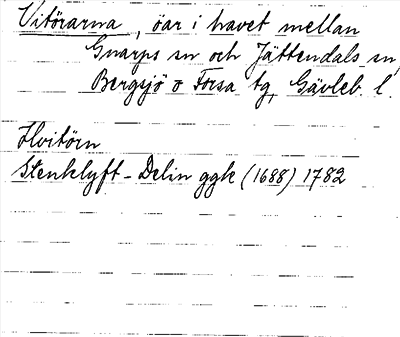 Vitörarna, öar i havet mellan
Gnarps sn och Jättendals sn,
Bergsjö o Forsa tg, Gävleb. l.
Hvitörn
Stenklyft-Delin ggk (1688) 1782